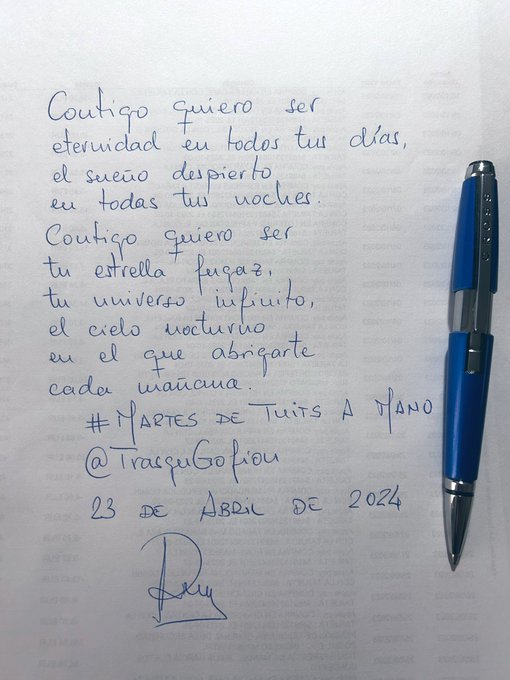 Contigo quiero ser
eternidad en todos tus días,
el sueño despierto
en todas tus noches.
Contigo quiero ser
tu estrella fugaz,
tu universo infinito,
el cielo nocturno
en el que abrigarte
cada mañana.
#MARTES DE TUITS A MANO
@TrasguGofion
23 DE ABRIL DE 2024
CROSS